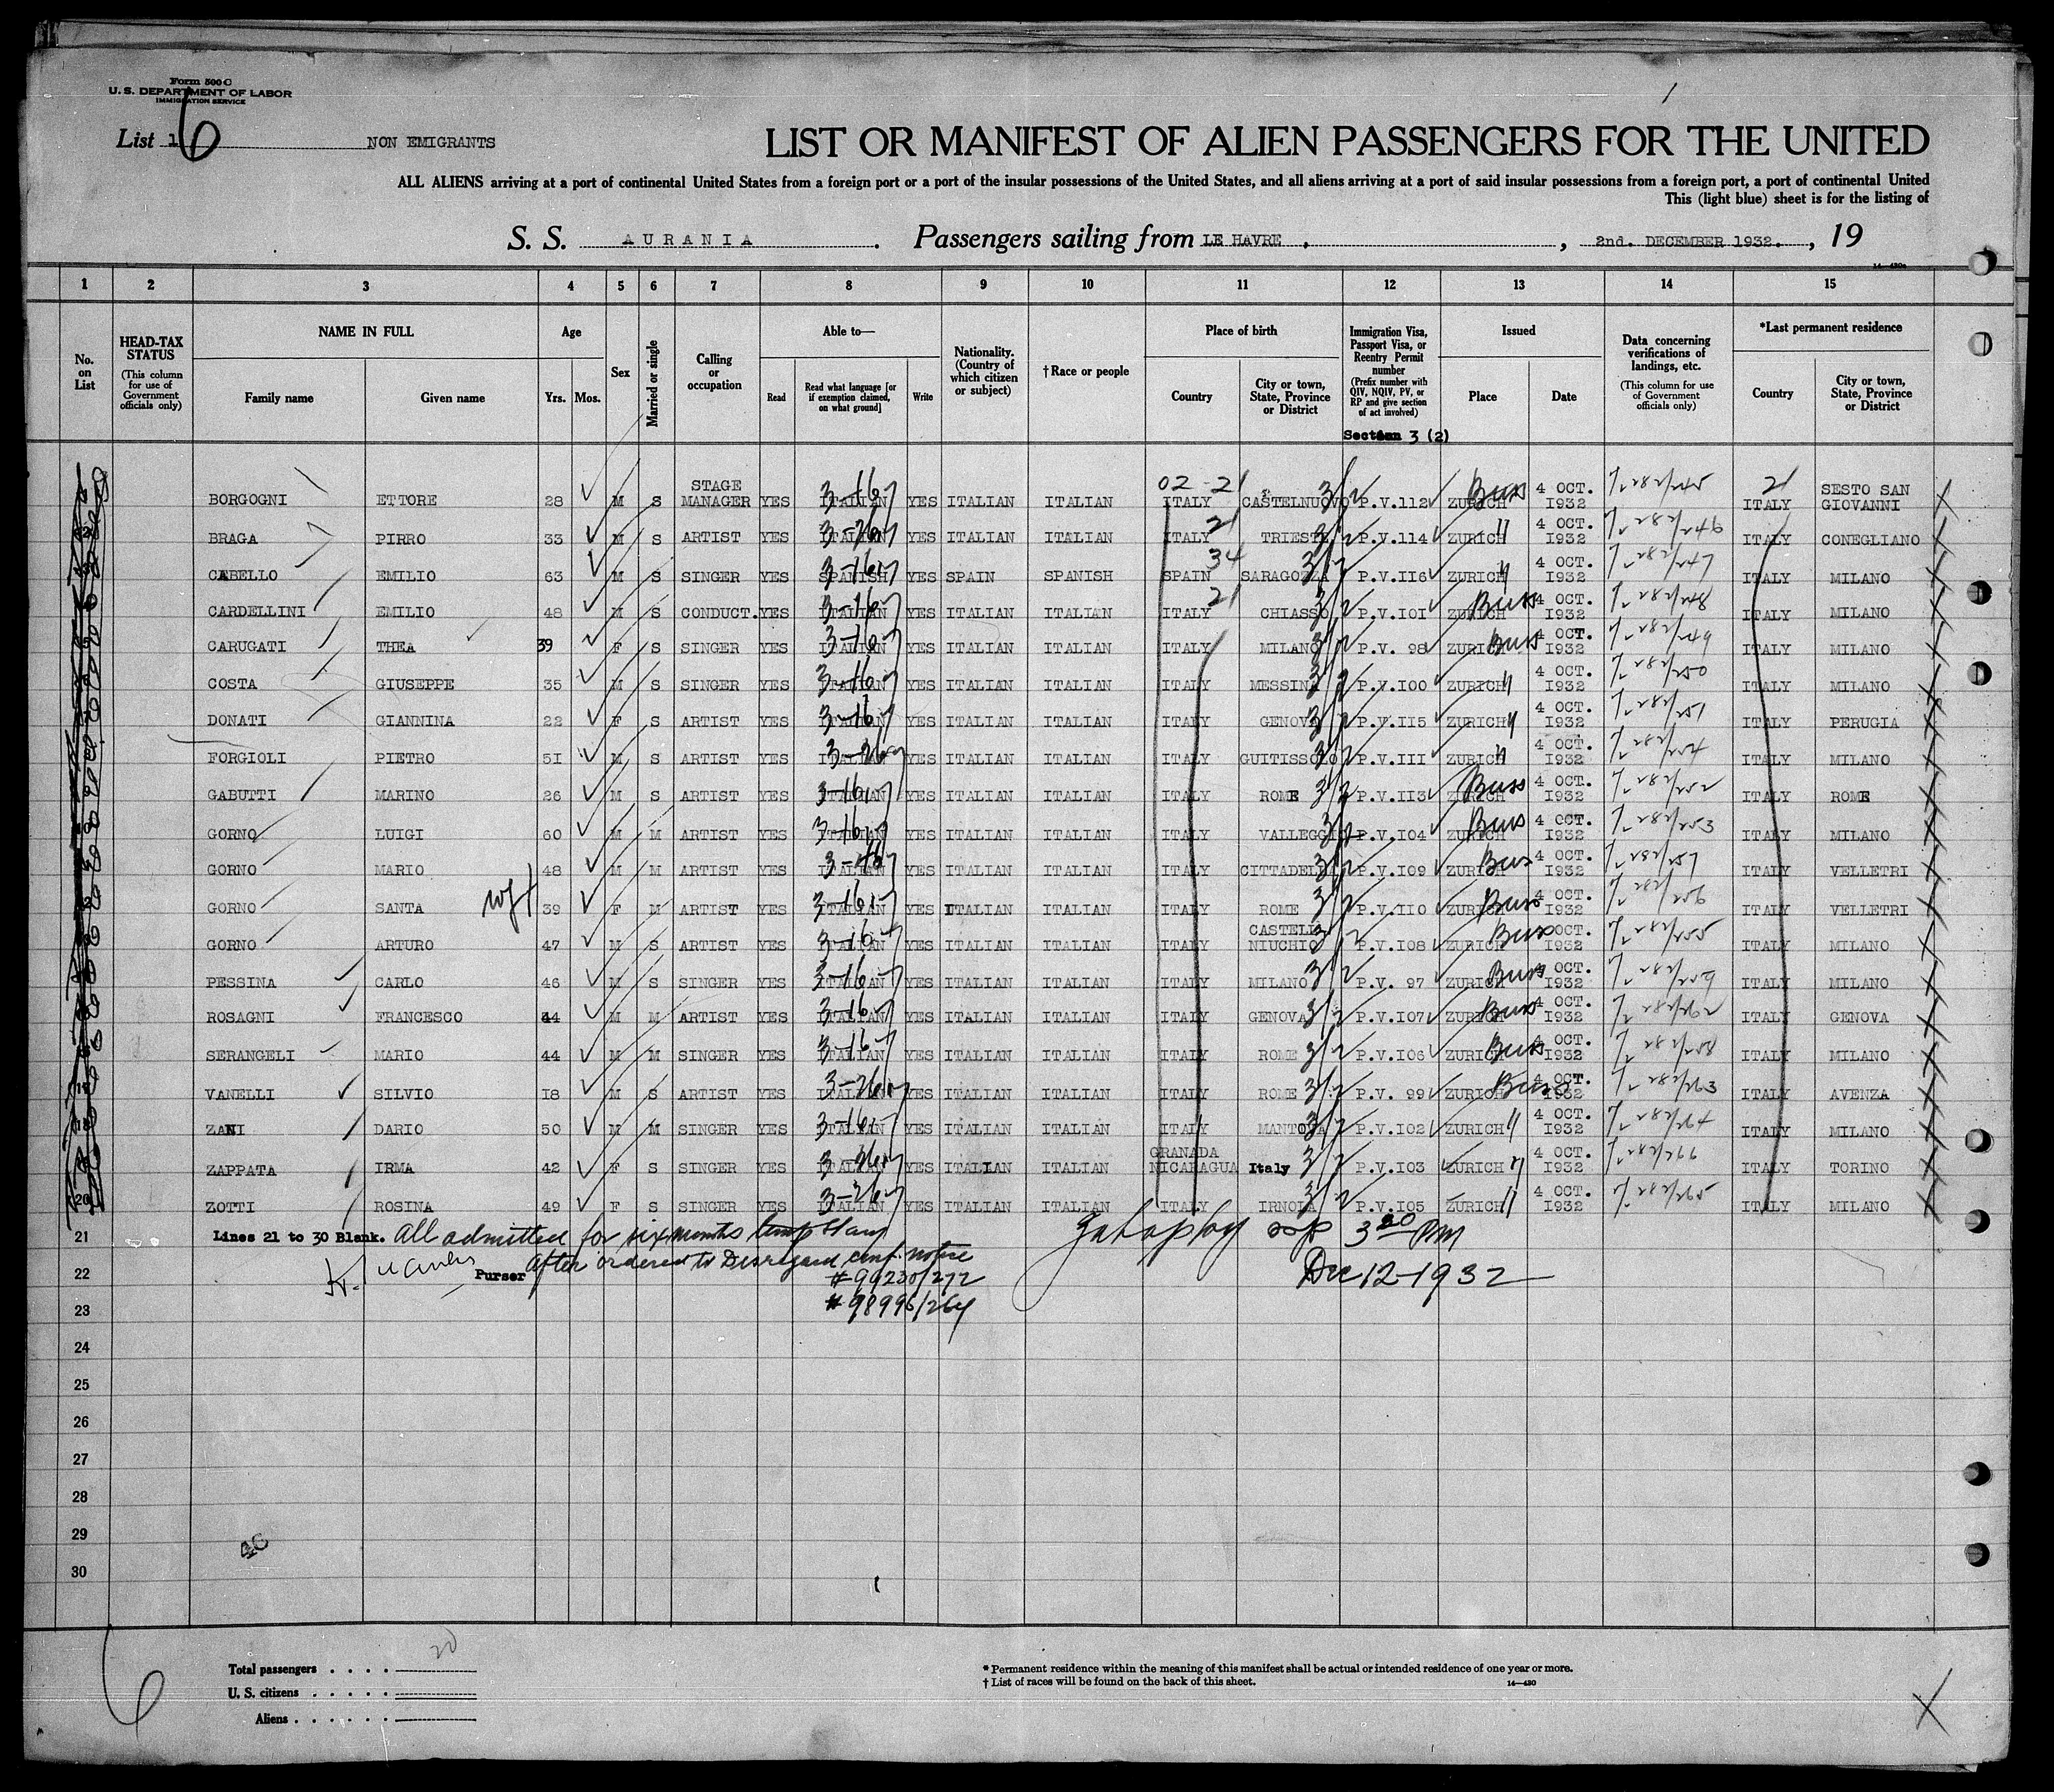 Form 500 C
U. S. DEPARTMENT OF LABOR
IMMIGRATION SERVICE
1
List 1 6 NON EMIGRANTS
LIST OR MANIFEST OF ALIEN PASSENGERS FOR THE UNITED
ALL ALIENS arriving at a port of continental United States from a foreign port or a port of the insular possessions of the United States, and all aliens arriving at a port of said insular possessions from a foreign port, a port of continental United
This (light blue) sheet is for the listing of
S. S. AURANIA. Passengers sailing from LE HAVRE, , 2nd. DECEMBER 1932. , 19
14—430a
1 2 3 4 5 6 7 8 9 10 11 12 13 14 15
No. on List
HEAD-TAX STATUS (This column for use of Government officials only)
NAME IN FULL
Family name Given name
Age
Yrs. Mos.
Sex
Married or single
Calling or occupation
Able to—
Read Read what language [or if exemption claimed, on what ground] Write
Nationality. (Country of which citizen or subject)
† Race or people
Place of birth
Country City or town, State, Province or District
Immigration Visa, Passport Visa, or Reentry Permit number (Prefix number with QIV, NQIV, PV, or RP and give section of act involved)
Section 3 (2)
Issued
Place Date
Data concerning verifications of landings, etc. (This column for use of Government officials only)
*Last permanent residence
Country City or town, State, Province or District
02-21 21
BORGOGNI ETTORE 28 M S STAGE MANAGER YES ITALIAN YES ITALIAN ITALIAN ITALY CASTELNUOVO P.V.112 ZURICH 4 OCT. 1932 7-282/245 ITALY SESTO SAN GIOVANNI
BRAGA PIRRO 33 M S ARTIST YES ITALIAN YES ITALIAN ITALIAN ITALY TRIESTE P.V.114 ZURICH 4 OCT. 1932 7-282/246 ITALY CONEGLIANO
CABELLO EMILIO 63 M S SINGER YES SPANISH YES SPAIN SPANISH SPAIN SARAGOZZA P.V.II6 ZURICH 4 OCT. 1932 7-282/247 ITALY MILANO
CARDELLINI EMILIO 48 M S CONDUCT. YES ITALIAN YES ITALIAN ITALIAN ITALY CHIASSO P.V.IOI ZURICH 4 OCT. 1932 7-282/248 ITALY MILANO
CARUGATI THEA 39 F S SINGER YES ITALIAN YES ITALIAN ITALIAN ITALY MILANO P.V. 98 ZURICH 4 OCT. 1932 7-282/249 ITALY MILANO
COSTA GIUSEPPE 35 M S SINGER YES ITALIAN YES ITALIAN ITALIAN ITALY MESSINA P.V.I00 ZURICH 4 OCT. 1932 7-282/250 ITALY MILANO
DONATI GIANNINA 22 F S ARTIST YES ITALIAN YES ITALIAN ITALIAN ITALY GENOVA P.V.II5 ZURICH 4 OCT. 1932 7-282/251 ITALY PERUGIA
FORGIOLI PIETRO 5I M S ARTIST YES ITALIAN YES ITALIAN ITALIAN ITALY P.V.III ZURICH 4 OCT. 1932 ITALY MILANO
GABUTTI MARINO 26 M S ARTIST YES ITALIAN YES ITALIAN ITALIAN ITALY ROME P.V.II3 ZURICH 4 OCT. 1932 7-282/252 ITALY ROME
GORNO LUIGI 60 M M ARTIST YES ITALIAN YES ITALIAN ITALIAN ITALY P.V.I04 ZURICH 4 OCT. 1932 7-282/253 ITALY MILANO
GORNO MARIO 48 M M ARTIST YES ITALIAN YES ITALIAN ITALIAN ITALY CITTADELLA P.V.I09 ZURICH 4 OCT. 1932 7-282/257 ITALY VELLETRI
GORNO SANTA 39 F M ARTIST YES ITALIAN YES ITALIAN ITALIAN ITALY ROME P.V.II0 ZURICH 4 OCT. 1932 7-282/256 ITALY VELLETRI
GORNO ARTURO 47 M S ARTIST YES ITALIAN YES ITALIAN ITALIAN ITALY CASTELL NIUCHIO P.V.I08 ZURICH 4 OCT. 1932 7-282/255 ITALY MILANO
PESSINA CARLO 46 M S SINGER YES ITALIAN YES ITALIAN ITALIAN ITALY MILANO P.V. 97 ZURICH 4 OCT. 1932 7-282/259 ITALY MILANO
ROSAGNI FRANCESCO 44 M M ARTIST YES ITALIAN YES ITALIAN ITALIAN ITALY GENOVA P.V.I07 ZURICH 4 OCT. 1932 7-282/262 ITALY GENOVA
SERANGELI MARIO 44 M M SINGER YES ITALIAN YES ITALIAN ITALIAN ITALY ROME P.V.I06 ZURICH 4 OCT. 1932 7-282/258 ITALY MILANO
VANELLI SILVIO I8 M S ARTIST YES ITALIAN YES ITALIAN ITALIAN ITALY ROME P.V. 99 ZURICH 4 OCT. 1932 7-282/263 ITALY AVENZA
ZANI DARIO 50 M M SINGER YES ITALIAN YES ITALIAN ITALIAN ITALY MANTOVA P.V.I02 ZURICH 4 OCT. 1932 7-282/264 ITALY MILANO
ZAPPATA IRMA 42 F S SINGER YES ITALIAN YES ITALIAN ITALIAN GRANADA NICARAGUA Italy P.V.I03 ZURICH 4 OCT. 1932 7-282/266 ITALY TORINO
20 ZOTTI ROSINA 49 F S SINGER YES ITALIAN YES ITALIAN ITALIAN ITALY P.V.I05 ZURICH 4 OCT. 1932 7-282/265 ITALY MILANO
21 Lines 21 to 30 Blank. All admitted for six months temp stay 3 20 PM
After ordered to Disregard conf. notice
22 Purser #99230/272 Dec 12-1932
23 #98996/264
24
25
26
27
28
29
30
40
6
Total passengers . . . . 20
U. S. citizens . . . . .
Aliens . . . . . .
* Permanent residence within the meaning of this manifest shall be actual or intended residence of one year or more.
† List of races will be found on the back of this sheet.
14—430
X